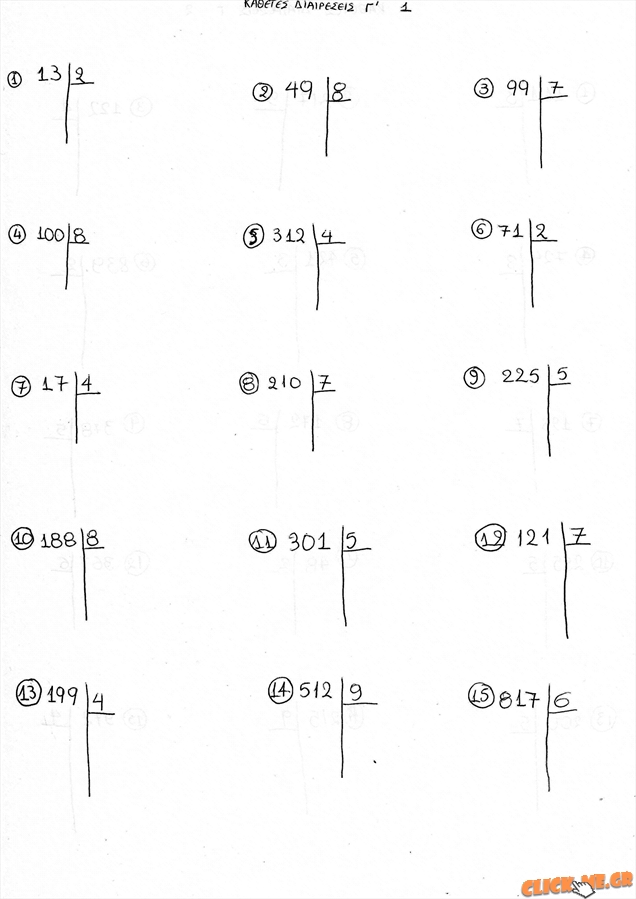 ΚΑΘΕΤΕΣ ΔΙΑΙΡΕΣΕΙΣ Γ' 1
① 13 2
② 49 8
③ 99 7
④ 100 8
⑤ 312 4
⑥ 71 2
⑦ 17 4
⑧ 210 7
⑨ 225 5
⑩ 188 8
⑪ 301 5
⑫ 121 7
⑬ 199 4
⑭ 512 9
⑮ 817 6
CLICK ME.GR